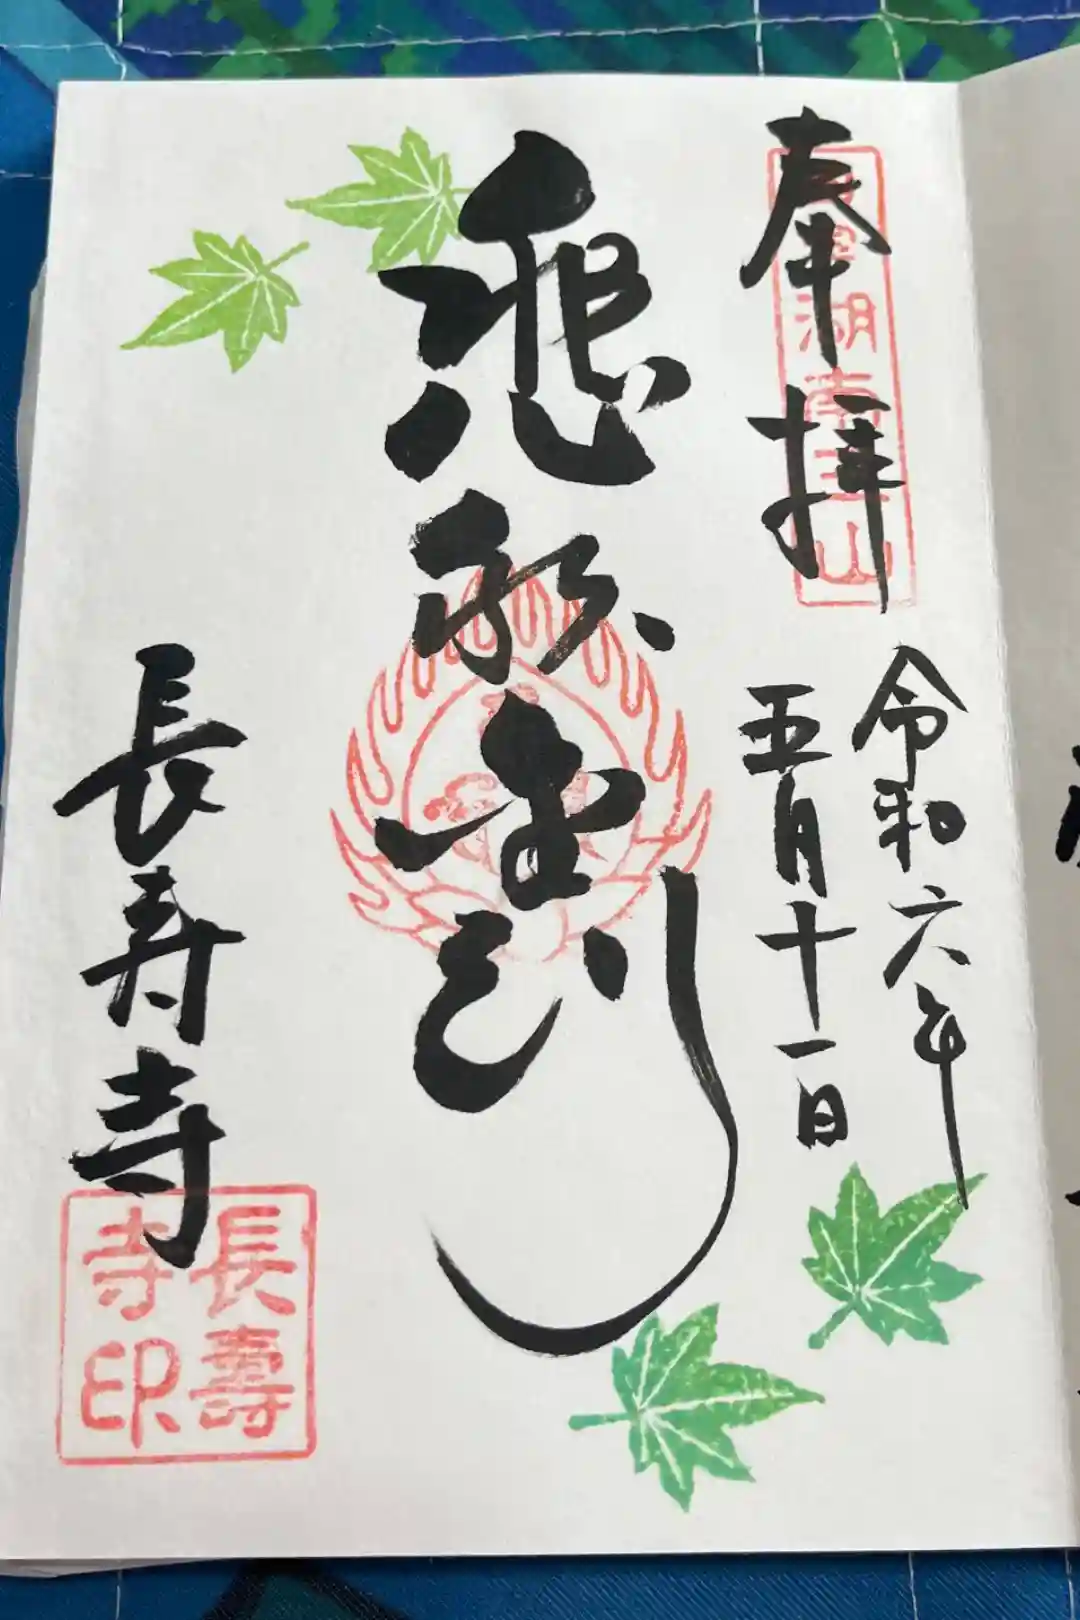 奉拝
湖南三山
令和六年
五月十一日
悲願金剛
長寿寺
長壽
寺印